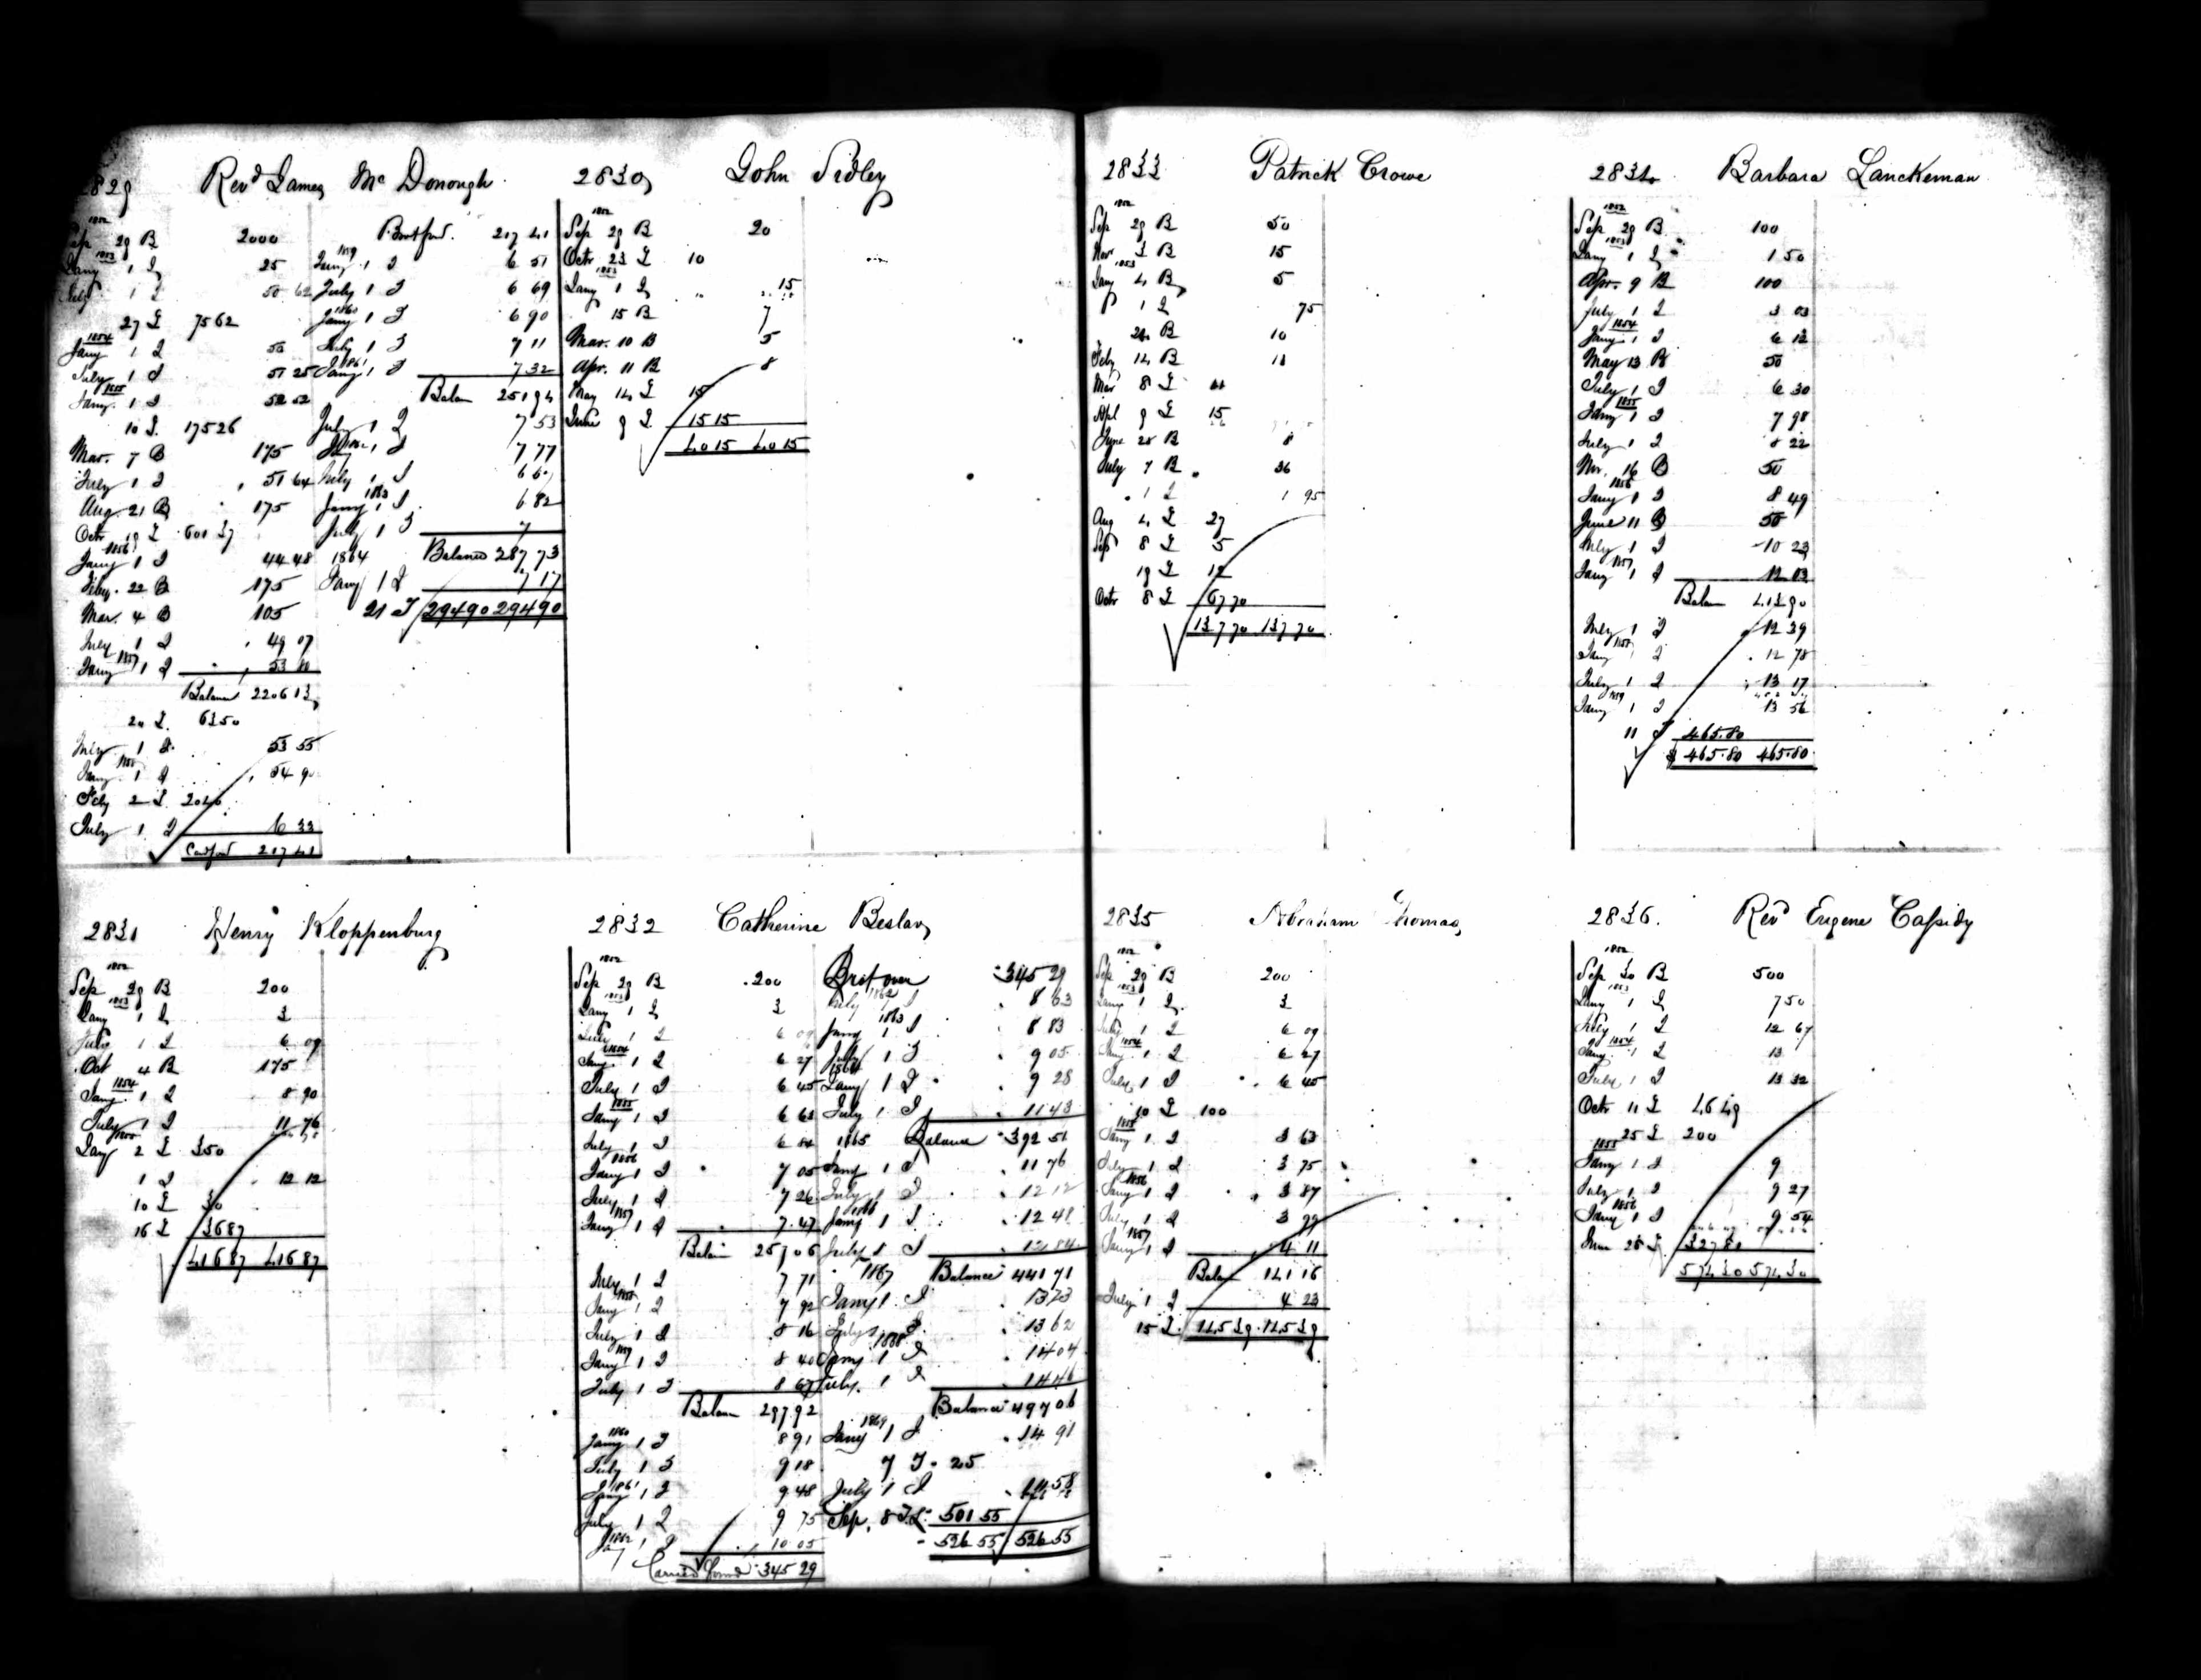 2829 Revd James McDonough
1852
Sep 29 B 2000
1853
Jany 1 I 25
July 1 I 50 62
27 L 75 62
1854
Jany 1 I 50
July 1 I 51 25
1855
Jany 1 I 52 52
10 L 175 26
Mar. 7 B 175
July 1 I 51 64
Aug. 21 B 175
Octr 19 L 601 37
1856
Jany 1 I 44 48
Feby. 22 B 175
Mar. 4 B 105
July 1 I 49 07
1857
Jany 1 I 53 80
Balance 2206 13
20 L 63 50
July 1 I 53 55
1858
Jany 1 I 54 90
Feby 2 L 2040
July 1 I 6 33
Carfod 217 41
Brotford. 217 41
1859
Jany 1 I 6 51
July 1 I 6 69
1860
Jany 1 I 6 90
July 1 I 7 11
1861
Jany 1 I 7 32
Balan 251 94
July 1 I 7 53
1862
Jany 1 I 7 77
July 1 I 6 60
1863
Jany 1 I 6 82
July 1 I 7
Balance 287 73
1864
Jany 1 I 7 17
21 I 294 90 294 90
2830 John Sidley
1852
Sep 29 B 20
Octr 23 L 10
1853
Jany 1 I 15
15 B 7
Mar. 10 B 5
Apr. 11 B 8
May 14 L 15
June 9 L 15 15
40 15 40 15
2831 Henry Kloppenburg
1852
Sep 29 B 200
1853
Jany 1 I 3
July 1 I 6 09
Oct 4 B 175
1854
Jany 1 I 8 90
July 1 I 11 76
1855
Jany 2 L 350
1 I 12 12
10 L 30
16 L 36 87
416 87 416 87
2832 Catherine Beslav
1852
Sep 29 B 200
1853
Jany 1 I 3
July 1 I 6 09
1854
Jany 1 I 6 27
July 1 I 6 45
1855
Jany 1 I 6 63
July 1 I 6 84
1856
Jany 1 I 7 05
July 1 I 7 26
1857
Jany 1 I 7 47
Balan 257 06
July 1 I 7 71
1858
Jany 1 I 7 92
July 1 I 8 16
1859
Jany 1 I 8 40
July 1 I 8 67
Balan 297 92
1860
Jany 1 I 8 91
July 1 I 9 18
1861
Jany 1 I 9 48
July 1 I 9 75
1862
Jany 1 I 10 05
Carried forwd 345 29
Brot over 345 29
1862
July 1 I 8 63
1863
Jany 1 I 8 83
July 1 I 9 05
1864
Jany 1 I 9 28
July 1 I 11 43
1865 Balance 392 51
Jany 1 I 11 76
July 1 I 12 12
1866
Jany 1 I 12 48
July 1 I 12 84
1867 Balance 441 71
Jany 1 I 13 23
July 1 I 13 62
1868
Jany 1 I 14 04
July 1 I 14 46
Balance 497 06
1869
Jany 1 I 14 91
7 I 25
July 1 I 14 58
Sep. 8 501 55
526 55 526 55
2833 Patrick Crowe
1852
Sep 29 B 50
Novr 3 B 15
1853
Jany 4 B 5
1 I 75
24 B 10
Feby 14 B 11
Mar 8 L
Apl 9 L 15
June 28 B 8
July 7 B 36
1 I 1 95
Aug 4 L 27
Sep 8 L 5
19 L 12
Octr 8 L 67 70
137 70 137 70
2834 Barbara Lanckeman
1852
Sep 29 B 100
1853
Jany 1 I 1 50
Apr. 9 B 100
July 1 I 3 03
1854
Jany 1 I 6 12
May 13 B 50
July 1 I 6 30
1855
Jany 1 I 7 98
July 1 I 8 22
Nov. 16 B 50
1856
Jany 1 I 8 49
June 11 B 50
July 1 I 10 23
1857
Jany 1 I 12 03
Balan 413 90
July 1 I 12 39
1858
Jany 1 I 12 78
July 1 I 13 17
1859
Jany 1 I 13 56
11 I 465.80
$ 465.80 465.80
2835 Abraham Thomas
1852
Sep 29 B 200
1853
Jany 1 I 3
July 1 I 6 09
1854
Jany 1 I 6 27
July 1 I 6 45
10 L 100
1855
Jany 1 I 3 63
July 1 I 3 75
1856
Jany 1 I 3 87
July 1 I 3 99
1857
Jany 1 I 4 11
Balan 141 16
July 1 I 4 23
15 L 145 39 145 39
2836. Revd Eugene Cassidy
1852
Sep 30 B 500
1853
Jany 1 I 7 50
July 1 I 12 67
1854
Jany 1 I 13
July 1 I 13 32
Octr 11 L 46 49
25 L 200
1855
Jany 1 I 9
July 1 I 9 27
1856
Jany 1 I 9 54
June 28 L 327 81
574 30 574 30